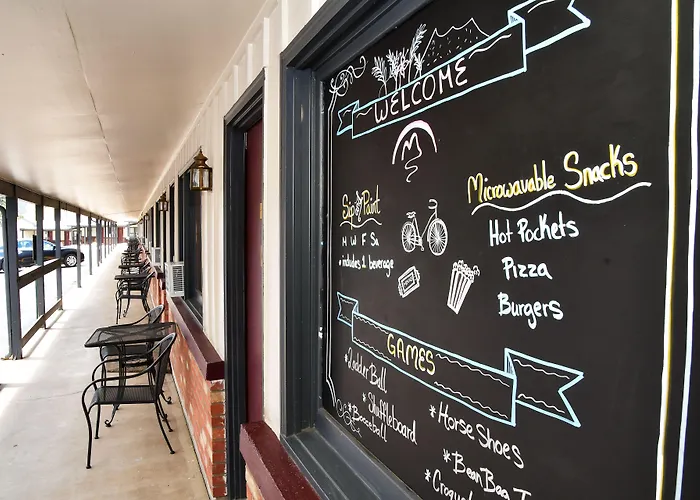 WELCOME
M
Sip & Paint
M W F Sa
• includes 1 beverage
Microwavable Snacks
Hot Pockets
Pizza
Burgers
GAMES
*Ladder Ball
*Shuffleboard
*Horse Shoes
*Bean Bag